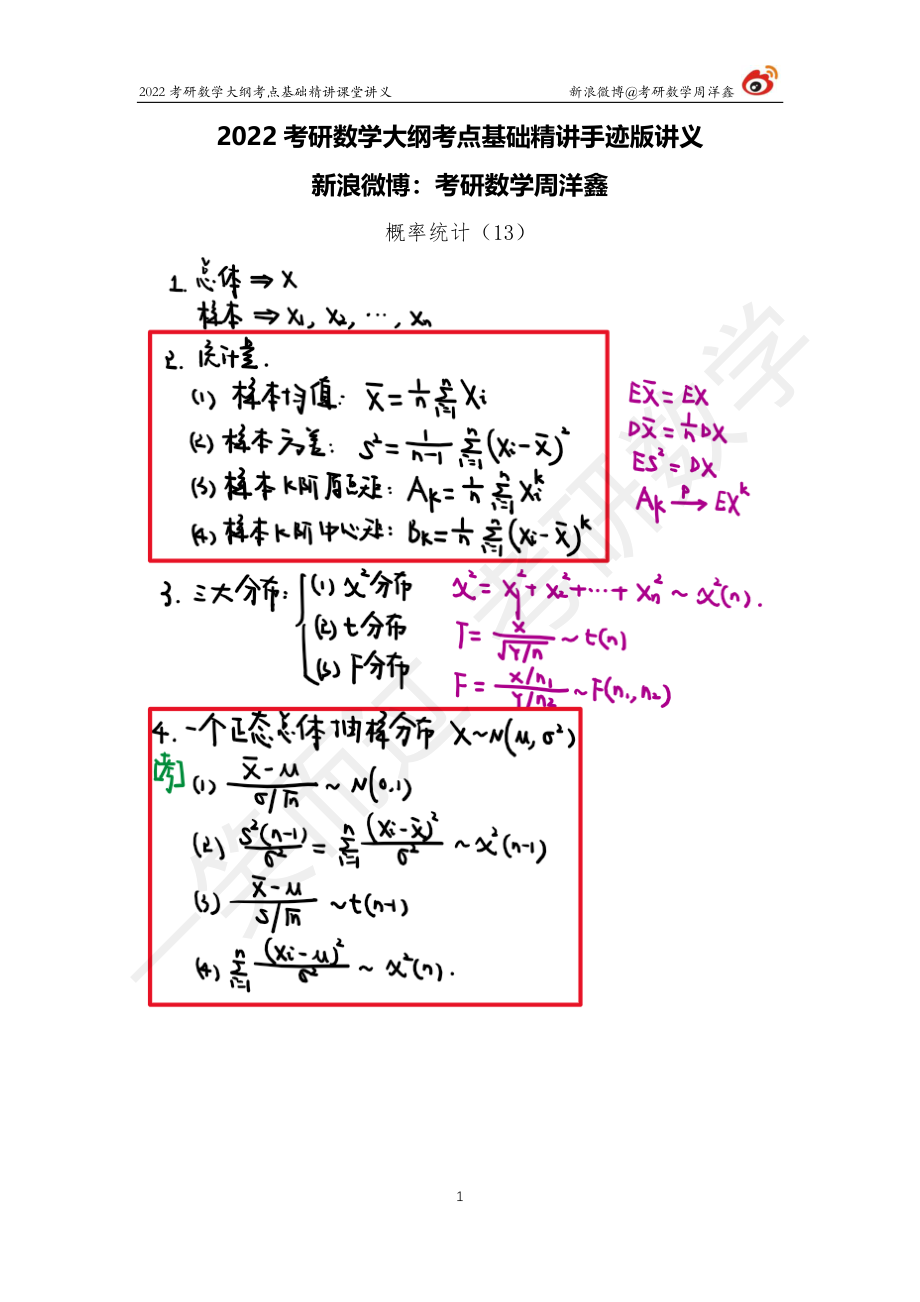 2022 考研数学大纲考点基础精讲课堂讲义 新浪微博@考研数学周洋鑫
2022 考研数学大纲考点基础精讲手迹版讲义
新浪微博：考研数学周洋鑫
概率统计（13）
1. 总体 ⇒ X
样本 ⇒ X₁, X₂, ⋯, Xₙ
2. 统计量.
(1) 样本均值: X̄ = 1/n ∑ᵢ₌₁ⁿ Xᵢ
(2) 样本方差: S² = 1/(n-1) ∑ᵢ₌₁ⁿ (Xᵢ - X̄)²
(3) 样本k阶原点矩: Aₖ = 1/n ∑ᵢ₌₁ⁿ Xᵢᵏ
(4) 样本k阶中心矩: Bₖ = 1/n ∑ᵢ₌₁ⁿ (Xᵢ - X̄)ᵏ
EX̄ = EX
DX̄ = 1/n DX
ES² = DX
Aₖ →ᴾ EXᵏ
3. 三大分布: (1) χ²分布 χ² = X₁² + X₂² + ⋯ + Xₙ² ~ χ²(n).
(2) t分布 T = X/√(Y/n) ~ t(n)
(3) F分布 F = (X/n₁)/(Y/n₂) ~ F(n₁, n₂)
4. 一个正态总体抽样分布 X~N(μ, σ²)
[考]
(1) (X̄ - μ)/(σ/√n) ~ N(0.1)
(2) S²(n-1)/σ² = ∑ᵢ₌₁ⁿ (Xᵢ - X̄)²/σ² ~ χ²(n-1)
(3) (X̄ - μ)/(S/√n) ~ t(n-1)
(4) ∑ᵢ₌₁ⁿ (Xᵢ - μ)²/σ² ~ χ²(n).
一笑而过 考研数学
1